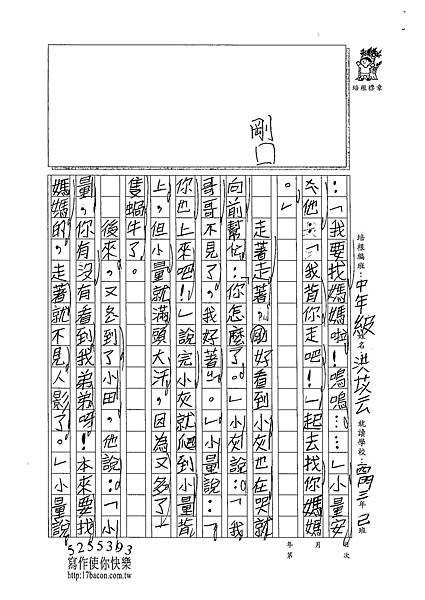 剛
培種標章
培種編班：中年級 姓名 洪苡云 就讀學校：三年2班
：「我要找媽媽啦！嗚嗚……」小量安
他：「我背你走吧！一起去找你媽媽
。」
走著走著，剛好看到小灰也在哭就
向前幫忙：「你怎麼了。」小灰說：「我
哥哥不見了，我好著。」小量說：「
你也上來吧！」說完小灰就爬到小量背
上，但小量就滿頭大汗，因為又多了一
隻蝸牛了。
後來，又多到了小田，他說：「小
量，你有沒有看到我弟弟呀！本來要找
媽媽的，走著就不見人影了。」小量說
年 月 日
第 次
5255393
寫作使你快樂
http://17bacon.com.tw